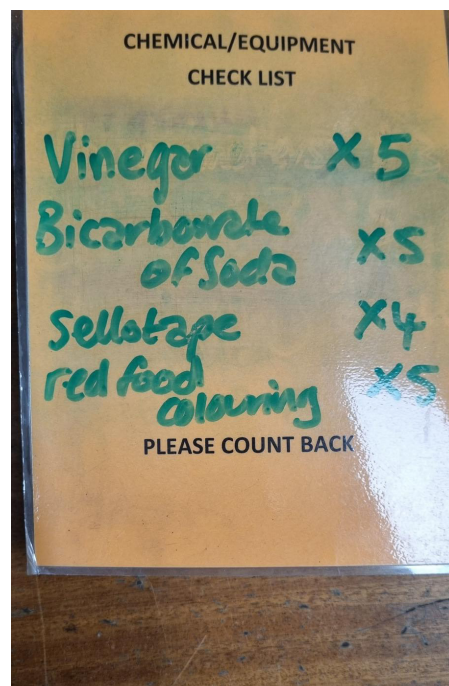 CHEMICAL/EQUIPMENT
CHECK LIST
Vinegar X 5
Bicarbonate
of Soda X5
Sellotape X4
red food
colouring X5
PLEASE COUNT BACK